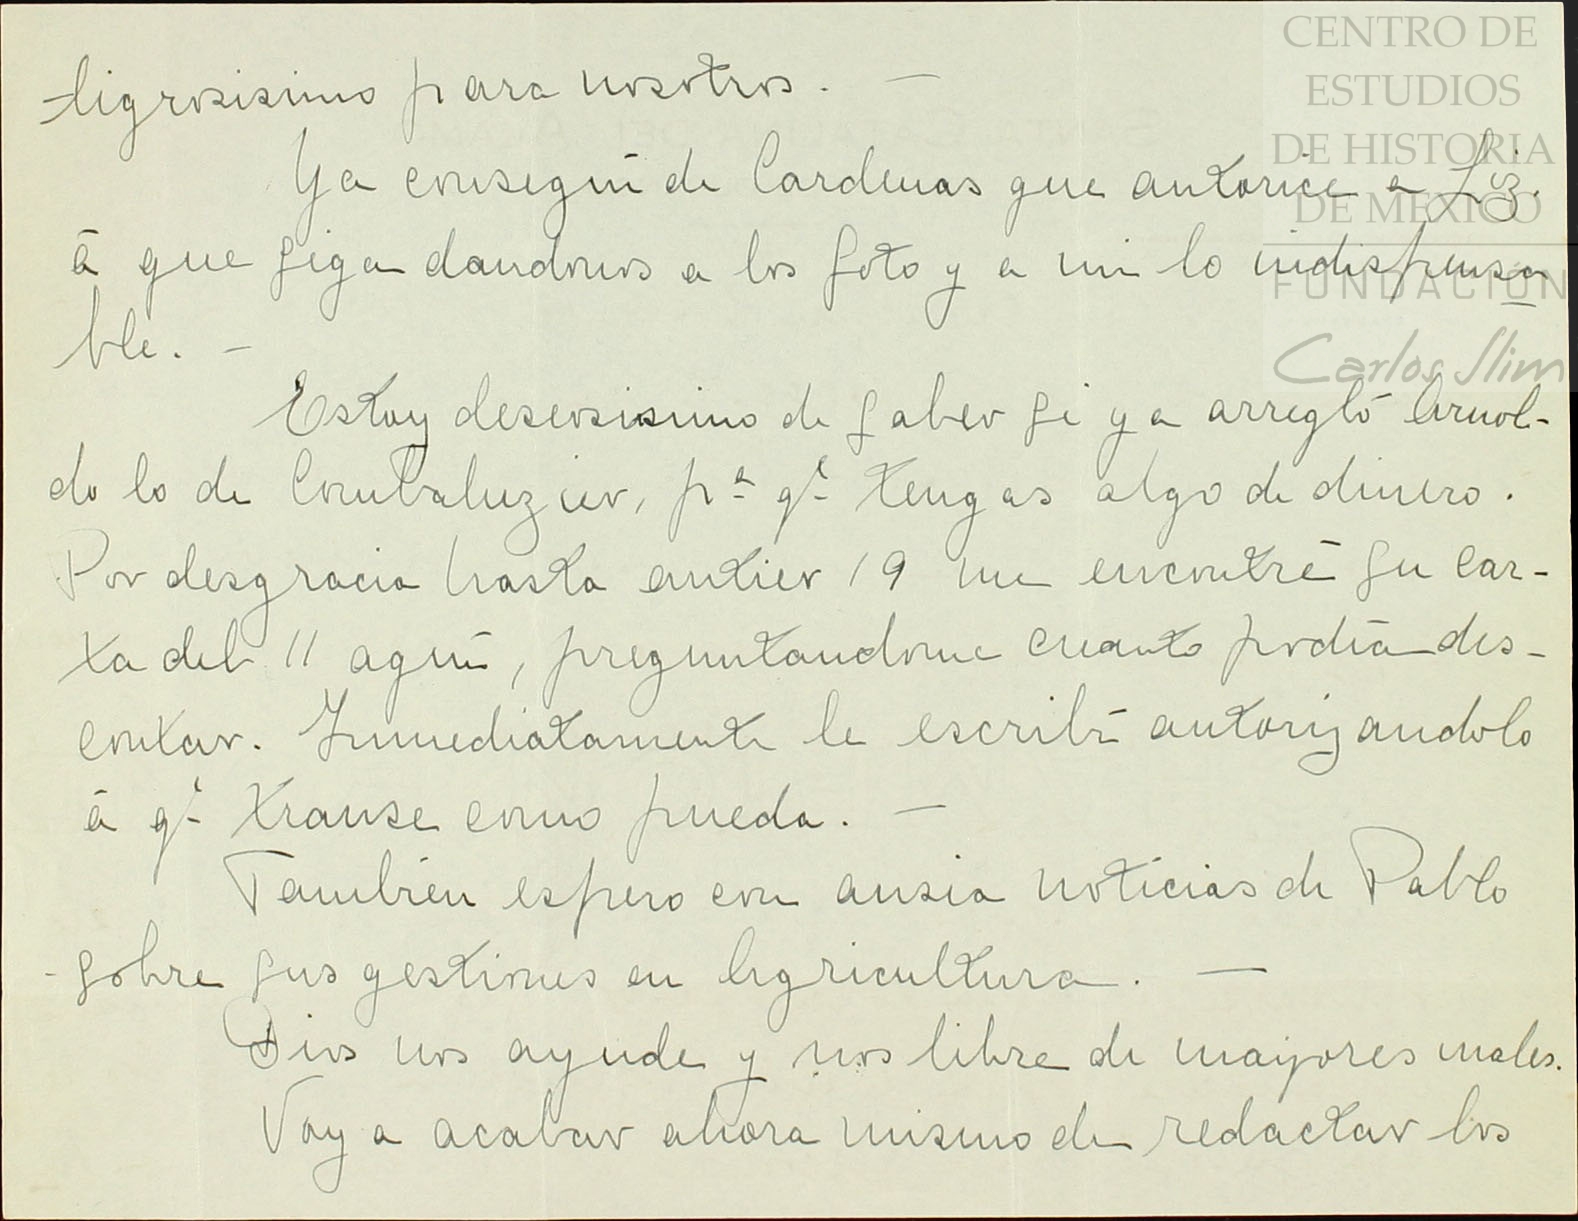 ligrosisimo para nosotros. —
Ya conseguí de Cardenas que autorice a Liz.
á que siga dandonos a los Soto y a mi lo indispensa
ble. —
Estoy deseosisimo de saber si ya arregló Arnol-
do lo de, pª qᵉ tengas algo de dinero.
Por desgracia hasta antier 19 me encontré su car-
ta del 11 aquí, preguntandome cuanto podía des-
contar. Inmediatamente le escribí autorizandolo
á qᵉ transe como pueda. —
También espero con ansia noticias de Pablo
sobre sus gestiones en Agricultura. —
Dios nos ayude y nos libre de mayores males.
Voy a acabar ahora mismo de redactar los
CENTRO DE
ESTUDIOS
DE HISTORIA
DE MÉXICO
FUNDACIÓN
Carlos Slim